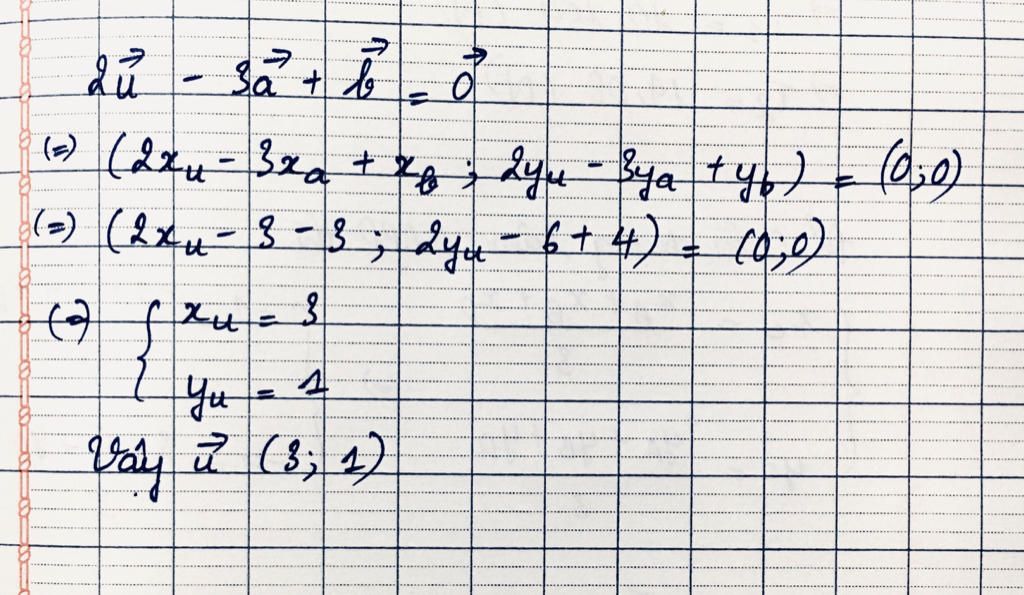 2u⃗ - 3a⃗ + b⃗ = 0⃗
(=) (2xᵤ - 3xₐ + x_b ; 2yᵤ - 3yₐ + y_b) = (0;0)
(=) (2xᵤ - 3 - 3 ; 2yᵤ - 6 + 4) = (0;0)
(=) { xᵤ = 3
yᵤ = 1
Vậy u⃗ (3; 1)